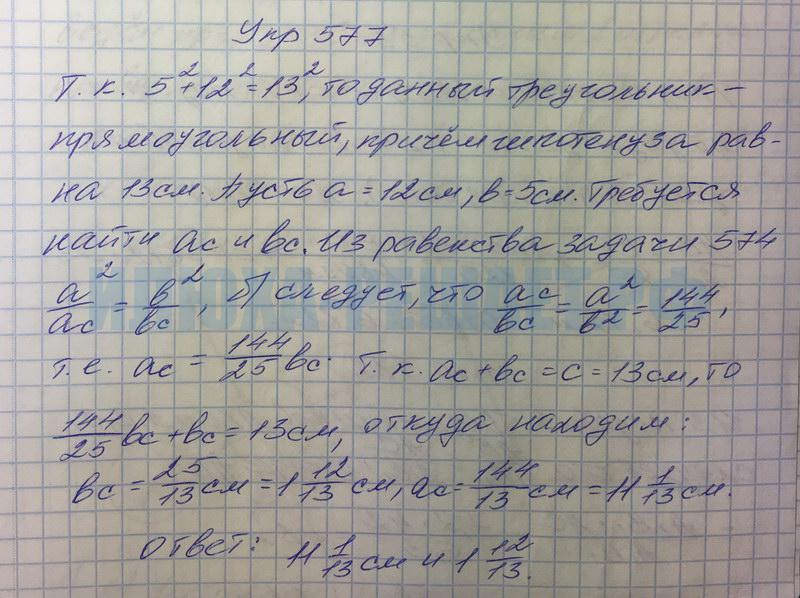 Упр 577
Т. к. 5²+12²=13², то данный треугольник –
прямоугольный, причём гипотенуза рав-
на 13см. Пусть a=12см, в=5см. Требуется
найти ac и вc. Из равенства задачи 574
a²/ac = в²/вc, б) следует, что ac/вc = a²/в² = 144/25,
т.е. ac = 144/25 вc. Т. к. ac+вc=c=13см, то
144/25 вc+вc=13см, откуда находим:
вc = 25/13 см = 1 12/13 см, ac = 144/13 см = 11 1/13 см.
Ответ: 11 1/13 см и 1 12/13.